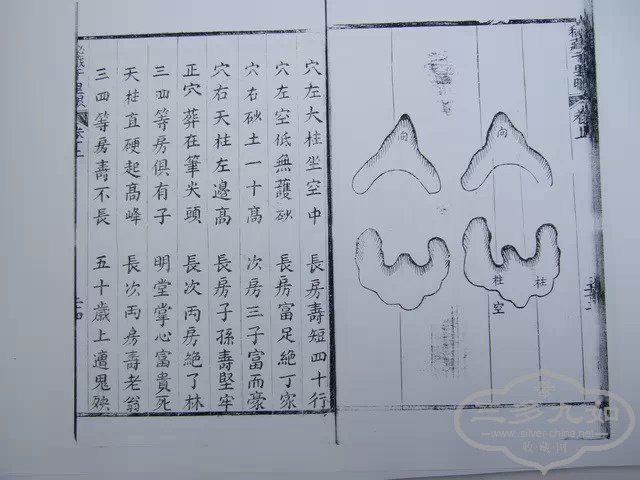 秘藏千里眼 卷上
向
向
柱
柱
空
穴左大柱坐空中 長房壽短四十行
穴左空低無護砂 長房富足絶丁家
穴右砂土一十高 次房三子富而豪
穴右天柱左邊高 長房子孫壽堅牢
正穴葬在筆尖頭 長次丙房絶了林
三四等房俱有子 明堂掌心富貴死
天柱直硬起髙峰 長次丙房壽老翁
三四等房壽不長 五十歲上遭鬼殃
秘藏千里眼 卷上
www.silver-china.net